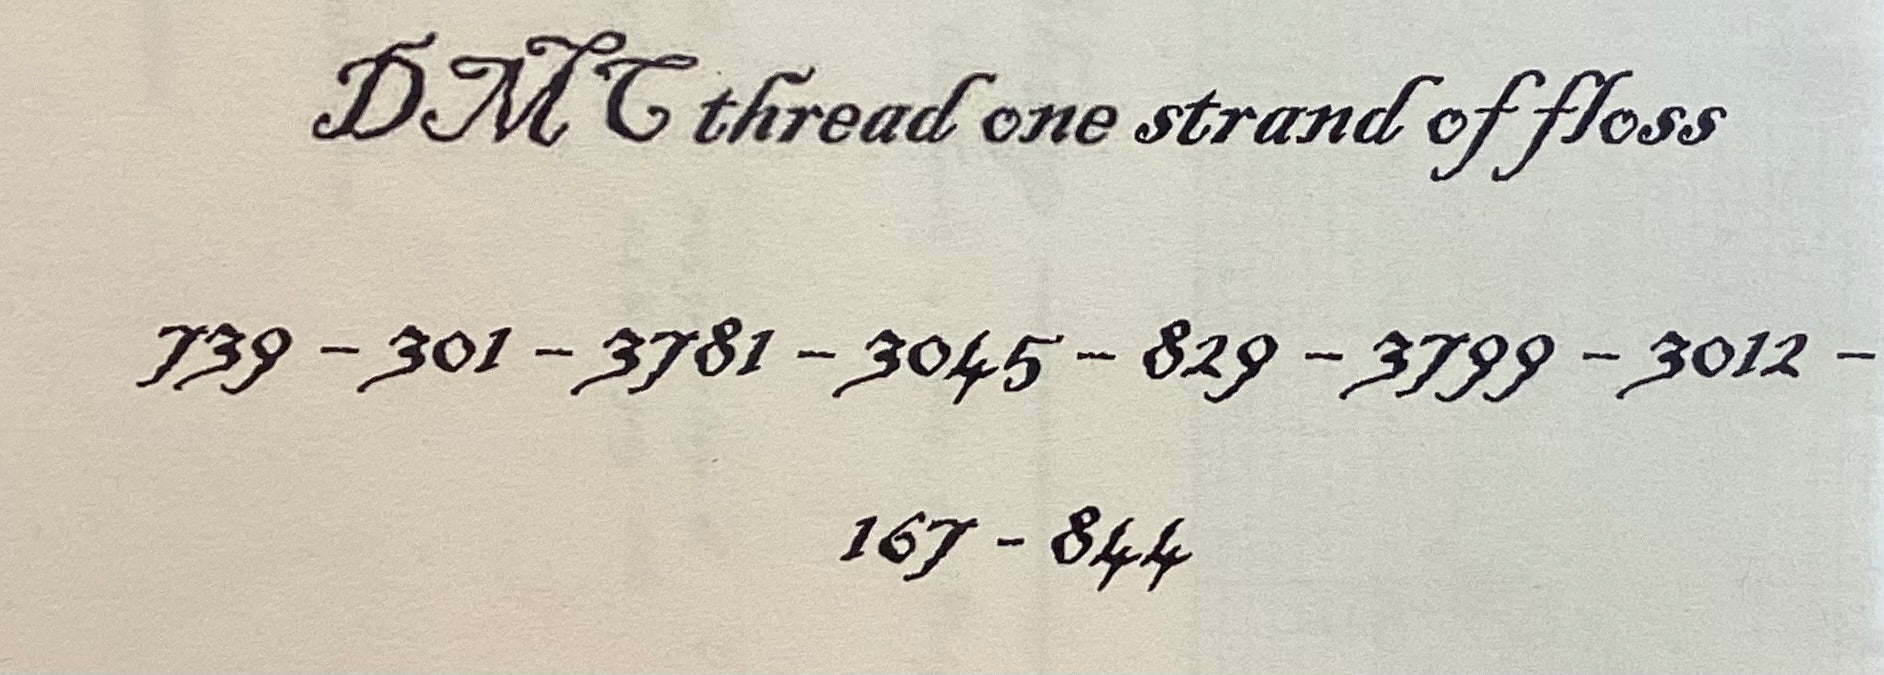 DMC thread one strand of floss
739 - 301 - 3781 - 3045 - 829 - 3799 - 3012 -
167 - 844